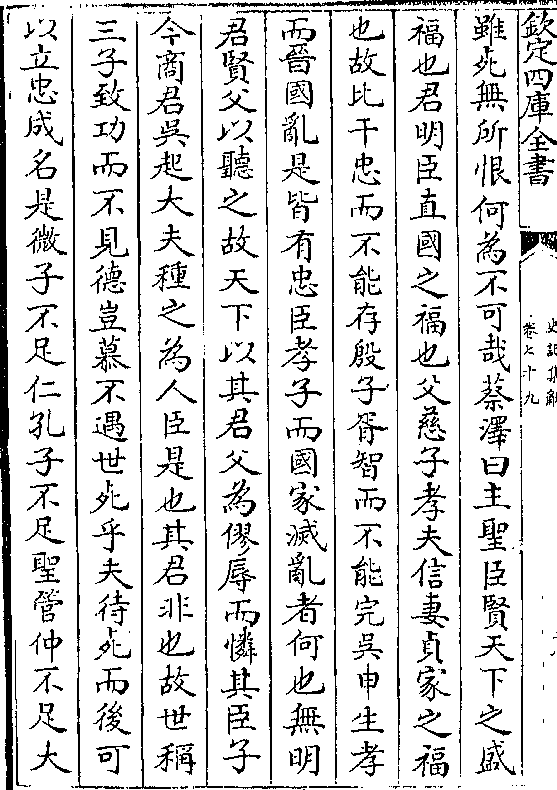 欽定四庫全書
史記集解
卷七十九
雖死無所恨何為不可哉蔡澤曰主聖臣賢天下之盛
福也君明臣直國之福也父慈子孝夫信妻貞家之福
也故比干忠而不能存殷子胥智而不能完吳申生孝
而晉國亂是皆有忠臣孝子而國家滅亂者何也無明
君賢父以聽之故天下以其君父為僇辱而憐其臣子
今商君吳起大夫種之為人臣是也其君非也故世稱
三子致功而不見德豈慕不遇世死乎夫待死而後可
以立忠成名是微子不足仁孔子不足聖管仲不足大